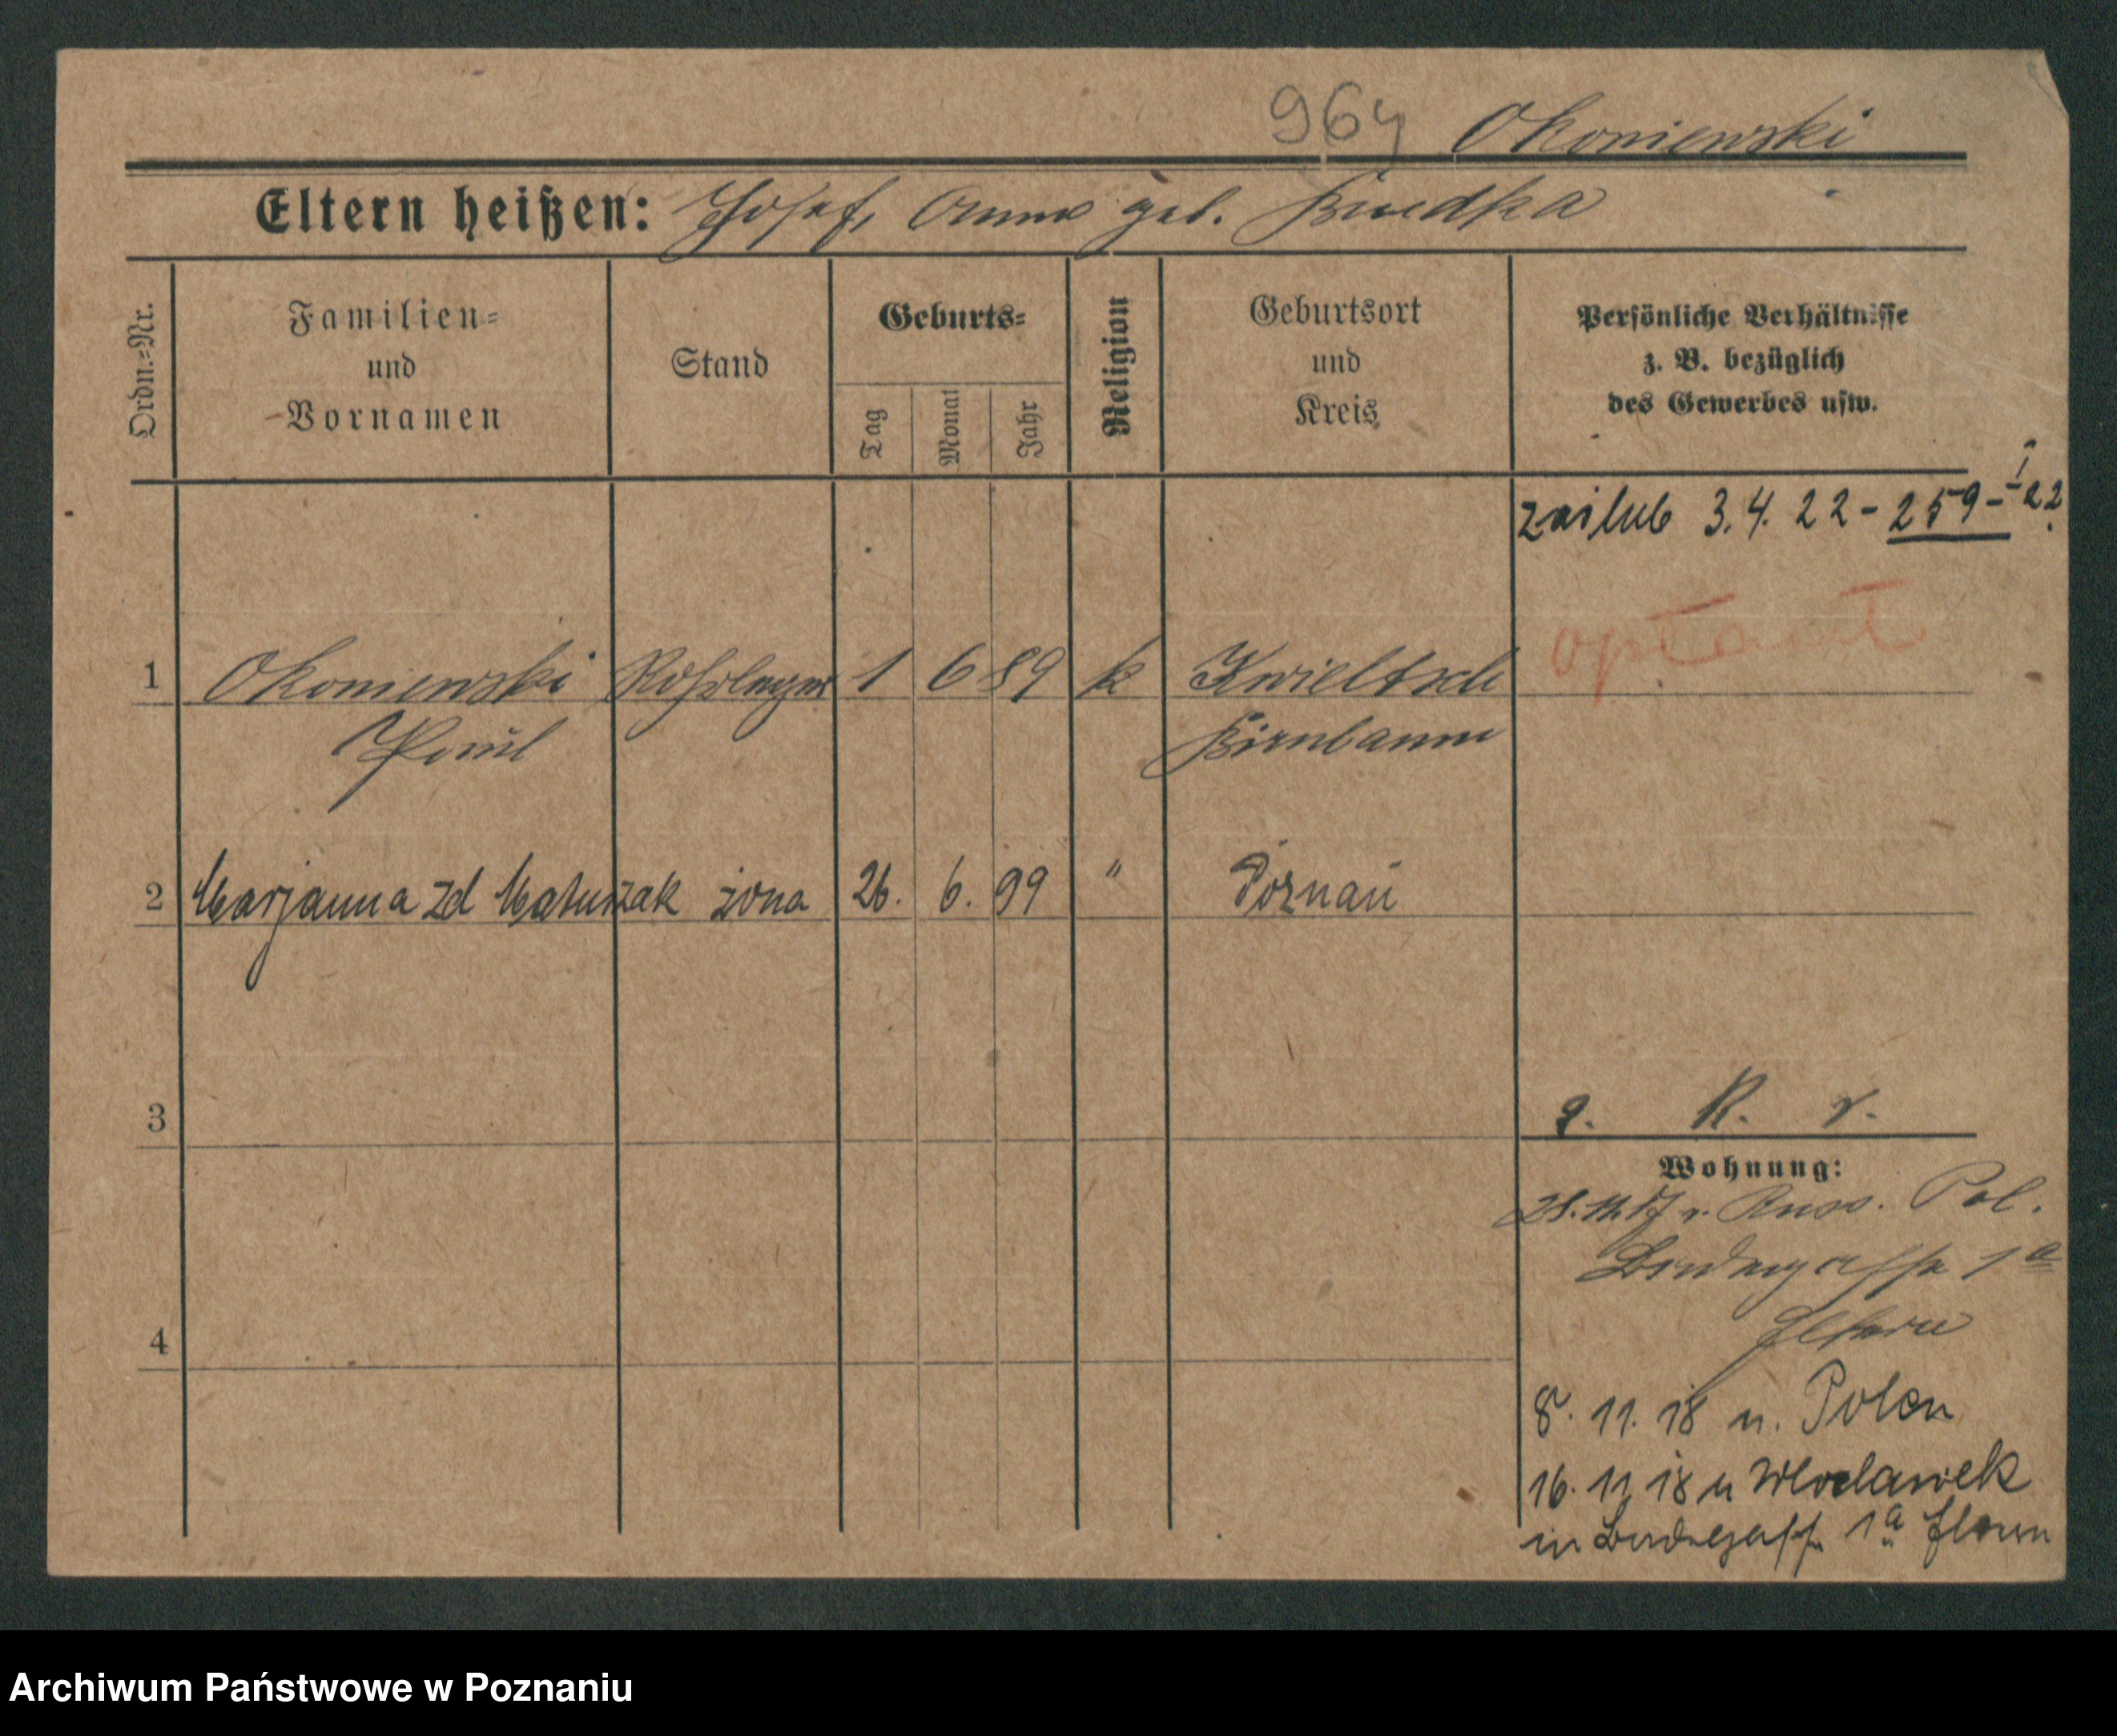 964 Okoniewski
Eltern heißen: Josef, Anna geb. Biedka
Ordn.-Nr.
Familien-
und
Vornamen
Stand
Geburts-
Tag
Monat
Jahr
Religion
Geburtsort
und
Kreis
Persönliche Verhältnisse
z. B. bezüglich
des Gewerbes usw.
zaślub 3.4.22 - 259 - I 22
optant
1 Okoniewski Rohrleger 1 6 89 k Kwieltsch
Paul Birnbaum
2 Marjanna zd Matuszak żona 26. 6. 99 " Poznań
3
R. v.
Wohnung:
28.11.17 v. Russ. Pol.
1a
Eltern
4
8. 11. 18 n. Polen
16. 11 18 v Wloclawek
in 1a Eltern
Archiwum Państwowe w Poznaniu